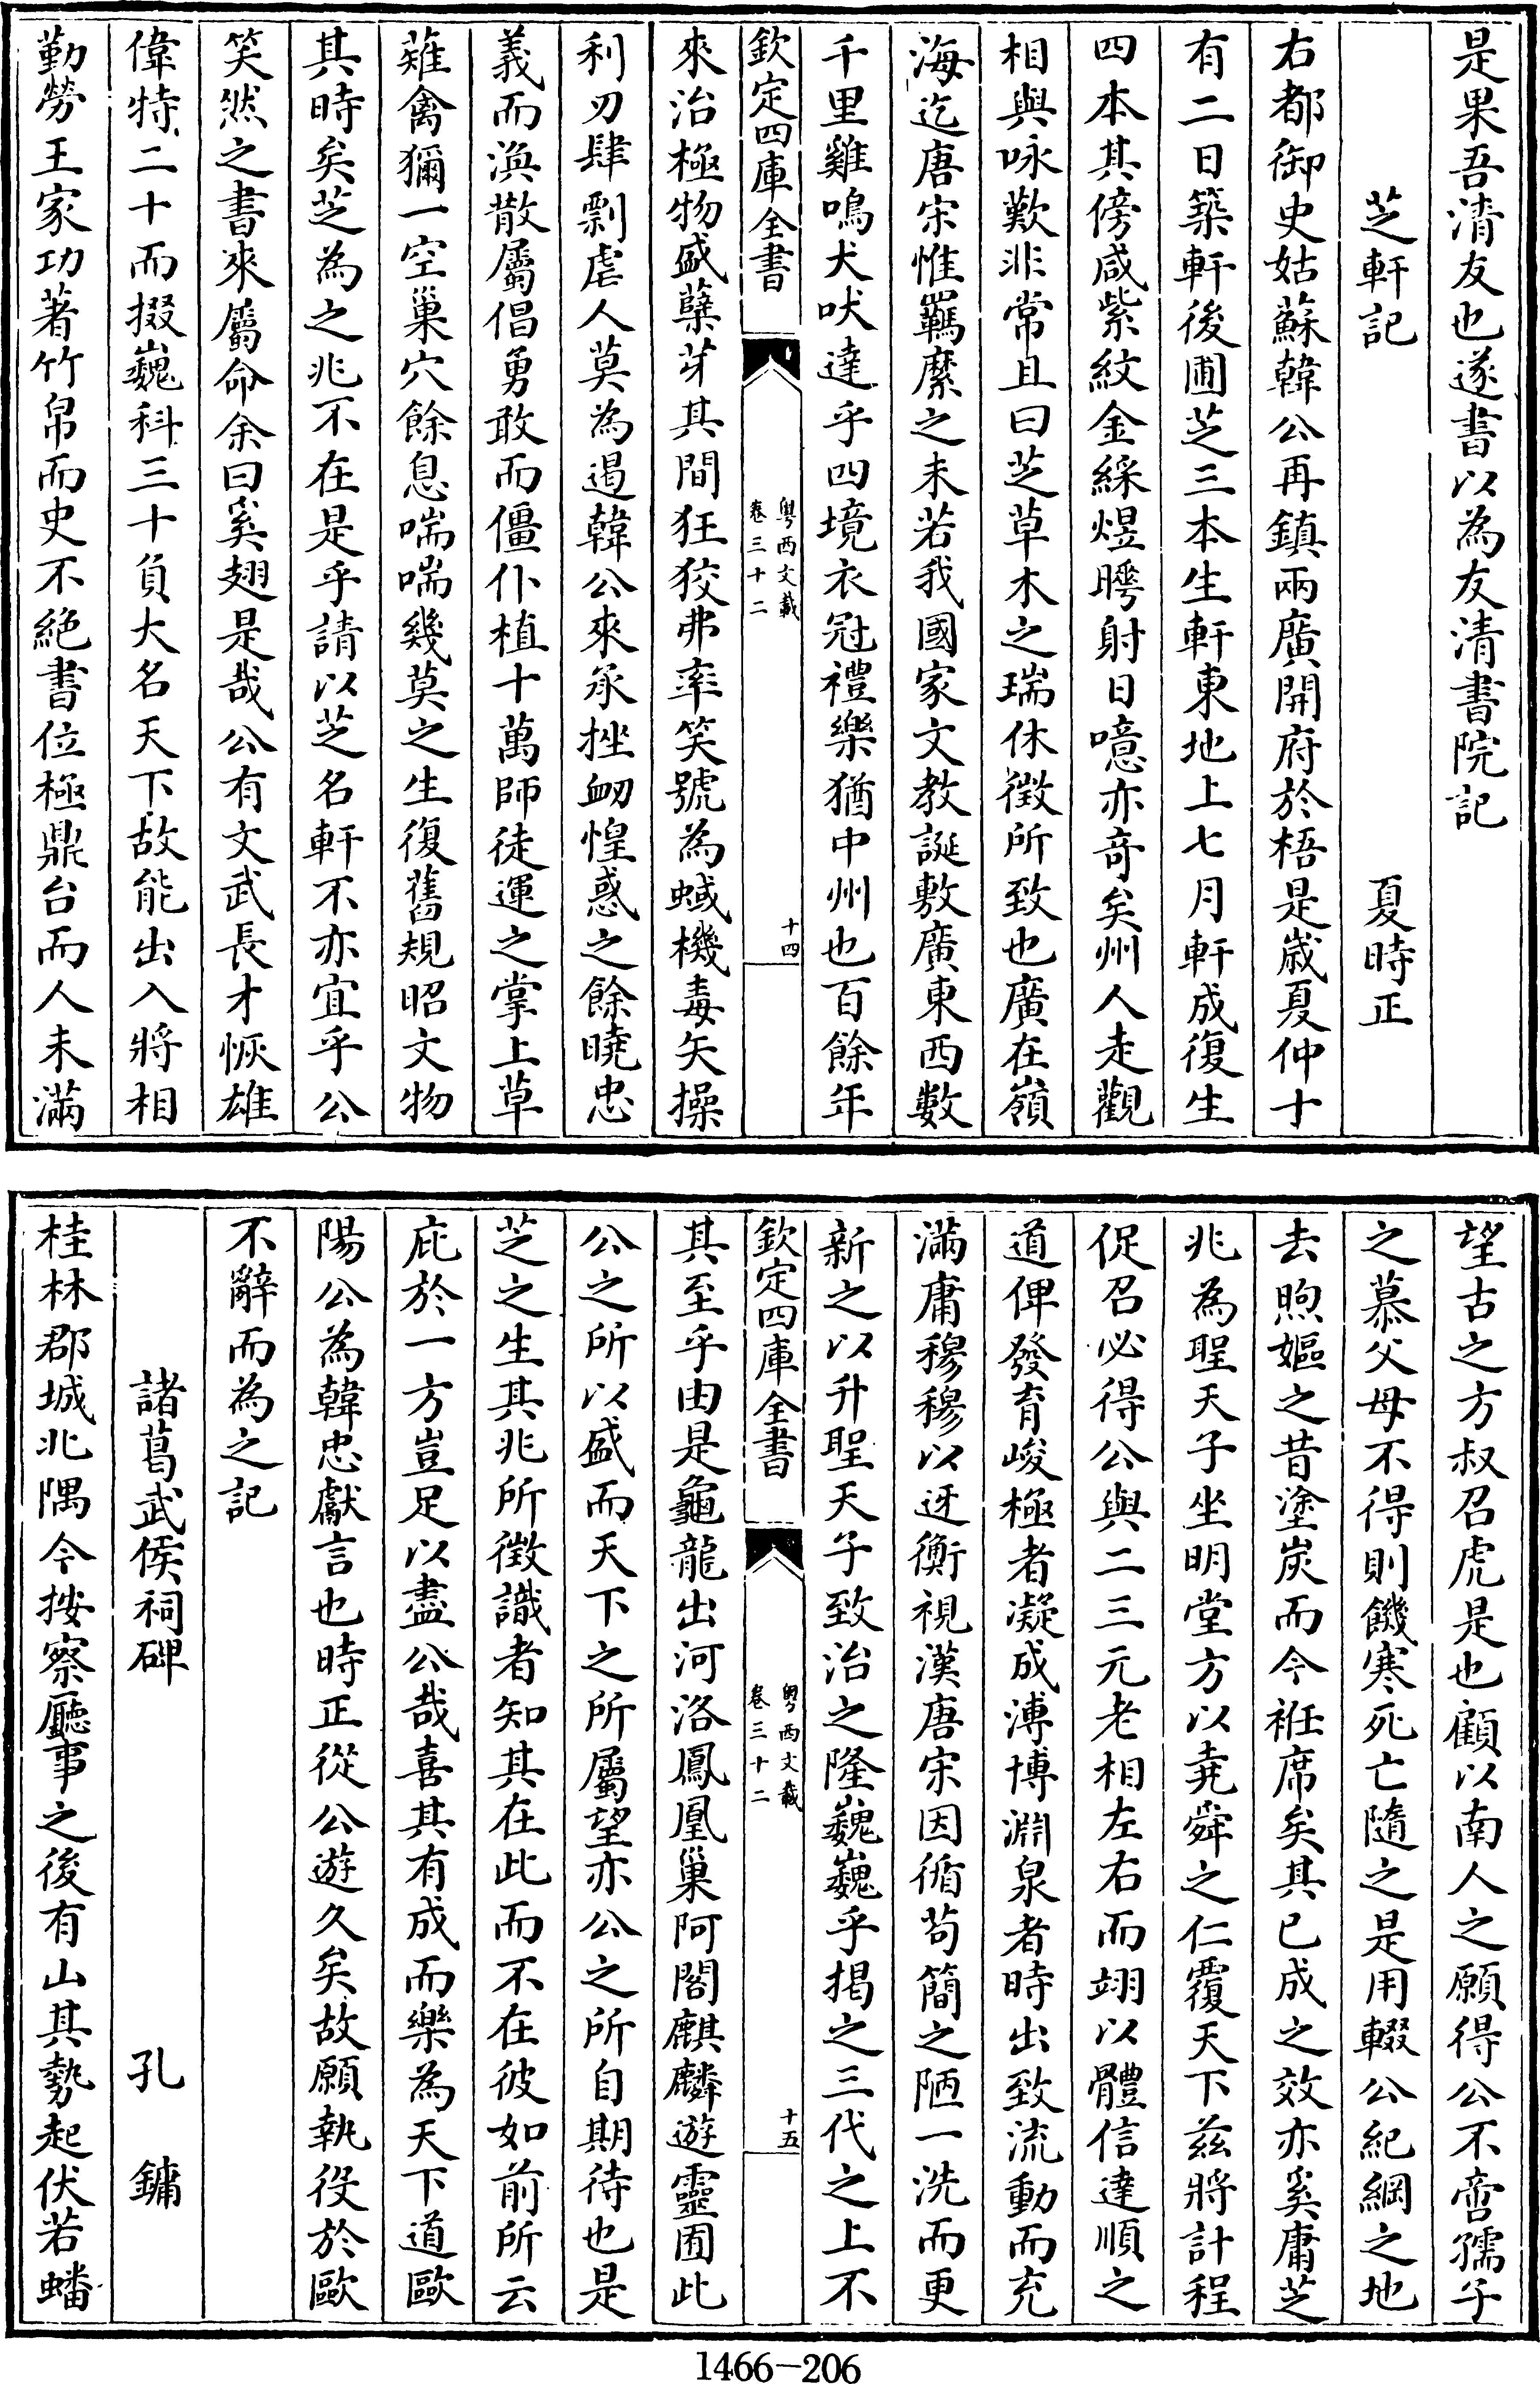 是果吾清友也遂書以為友清書院記
芝軒記　夏時正
右都御史姑蘇韓公再鎮兩廣開府於梧是嵗夏仲十
有二日築軒後圃芝三本生軒東地上七月軒成復生
四本其傍咸紫紋金綵煜曄射日噫亦奇矣州人走觀
相與咏歎非常且曰芝草木之瑞休徴所致也廣在嶺
海迄唐宋惟羈縻之未若我國家文教誕敷廣東西數
千里雞鳴犬吠達乎四境衣冠禮樂猶中州也百餘年
欽定四庫全書
粵西文載
卷三十二
十四
來治極物盛蘖芽其間狂狡弗率笑號為蜮機毒矢操
利刃肆剽虐人莫為遏韓公來承挫衂惶惑之餘曉忠
義而渙散屬倡勇敢而僵仆植十萬師徒運之掌上草
薙禽獮一空巢穴餘息喘喘幾莫之生復舊規昭文物
其時矣芝為之兆不在是乎請以芝名軒不亦宜乎公
笑然之書來屬命余曰奚翅是哉公有文武長才恢雄
偉特二十而掇巍科三十負大名天下故能出入將相
勤勞王家功著竹帛而史不絕書位極鼎台而人未滿
望古之方叔召虎是也顧以南人之願得公不啻孺子
之慕父母不得則饑寒死亡隨之是用輟公紀綱之地
去煦嫗之昔塗炭而今袵席矣其已成之效亦奚庸芝
兆為聖天子坐明堂方以堯舜之仁覆天下兹將計程
促召必得公與二三元老相左右而翊以體信達順之
道俾發育峻極者凝成溥博淵泉者時出致流動而充
滿庸穆穆以迓衡視漢唐宋因循茍簡之陋一洗而更
新之以升聖天子致治之隆巍巍乎掲之三代之上不
欽定四庫全書
粵西文載
卷三十二
十五
其至乎由是龜龍出河洛鳳凰巢阿閣麒麟遊靈囿此
公之所以盛而天下之所屬望亦公之所自期待也是
芝之生其兆所徴識者知其在此而不在彼如前所云
庇於一方豈足以盡公哉喜其有成而樂為天下道歐
陽公為韓忠獻言也時正從公遊久矣故願執役於歐
不辭而為之記
諸葛武侯祠碑　孔鏞
桂林郡城北隅今按察廳事之後有山其勢起伏若蟠
1466-206